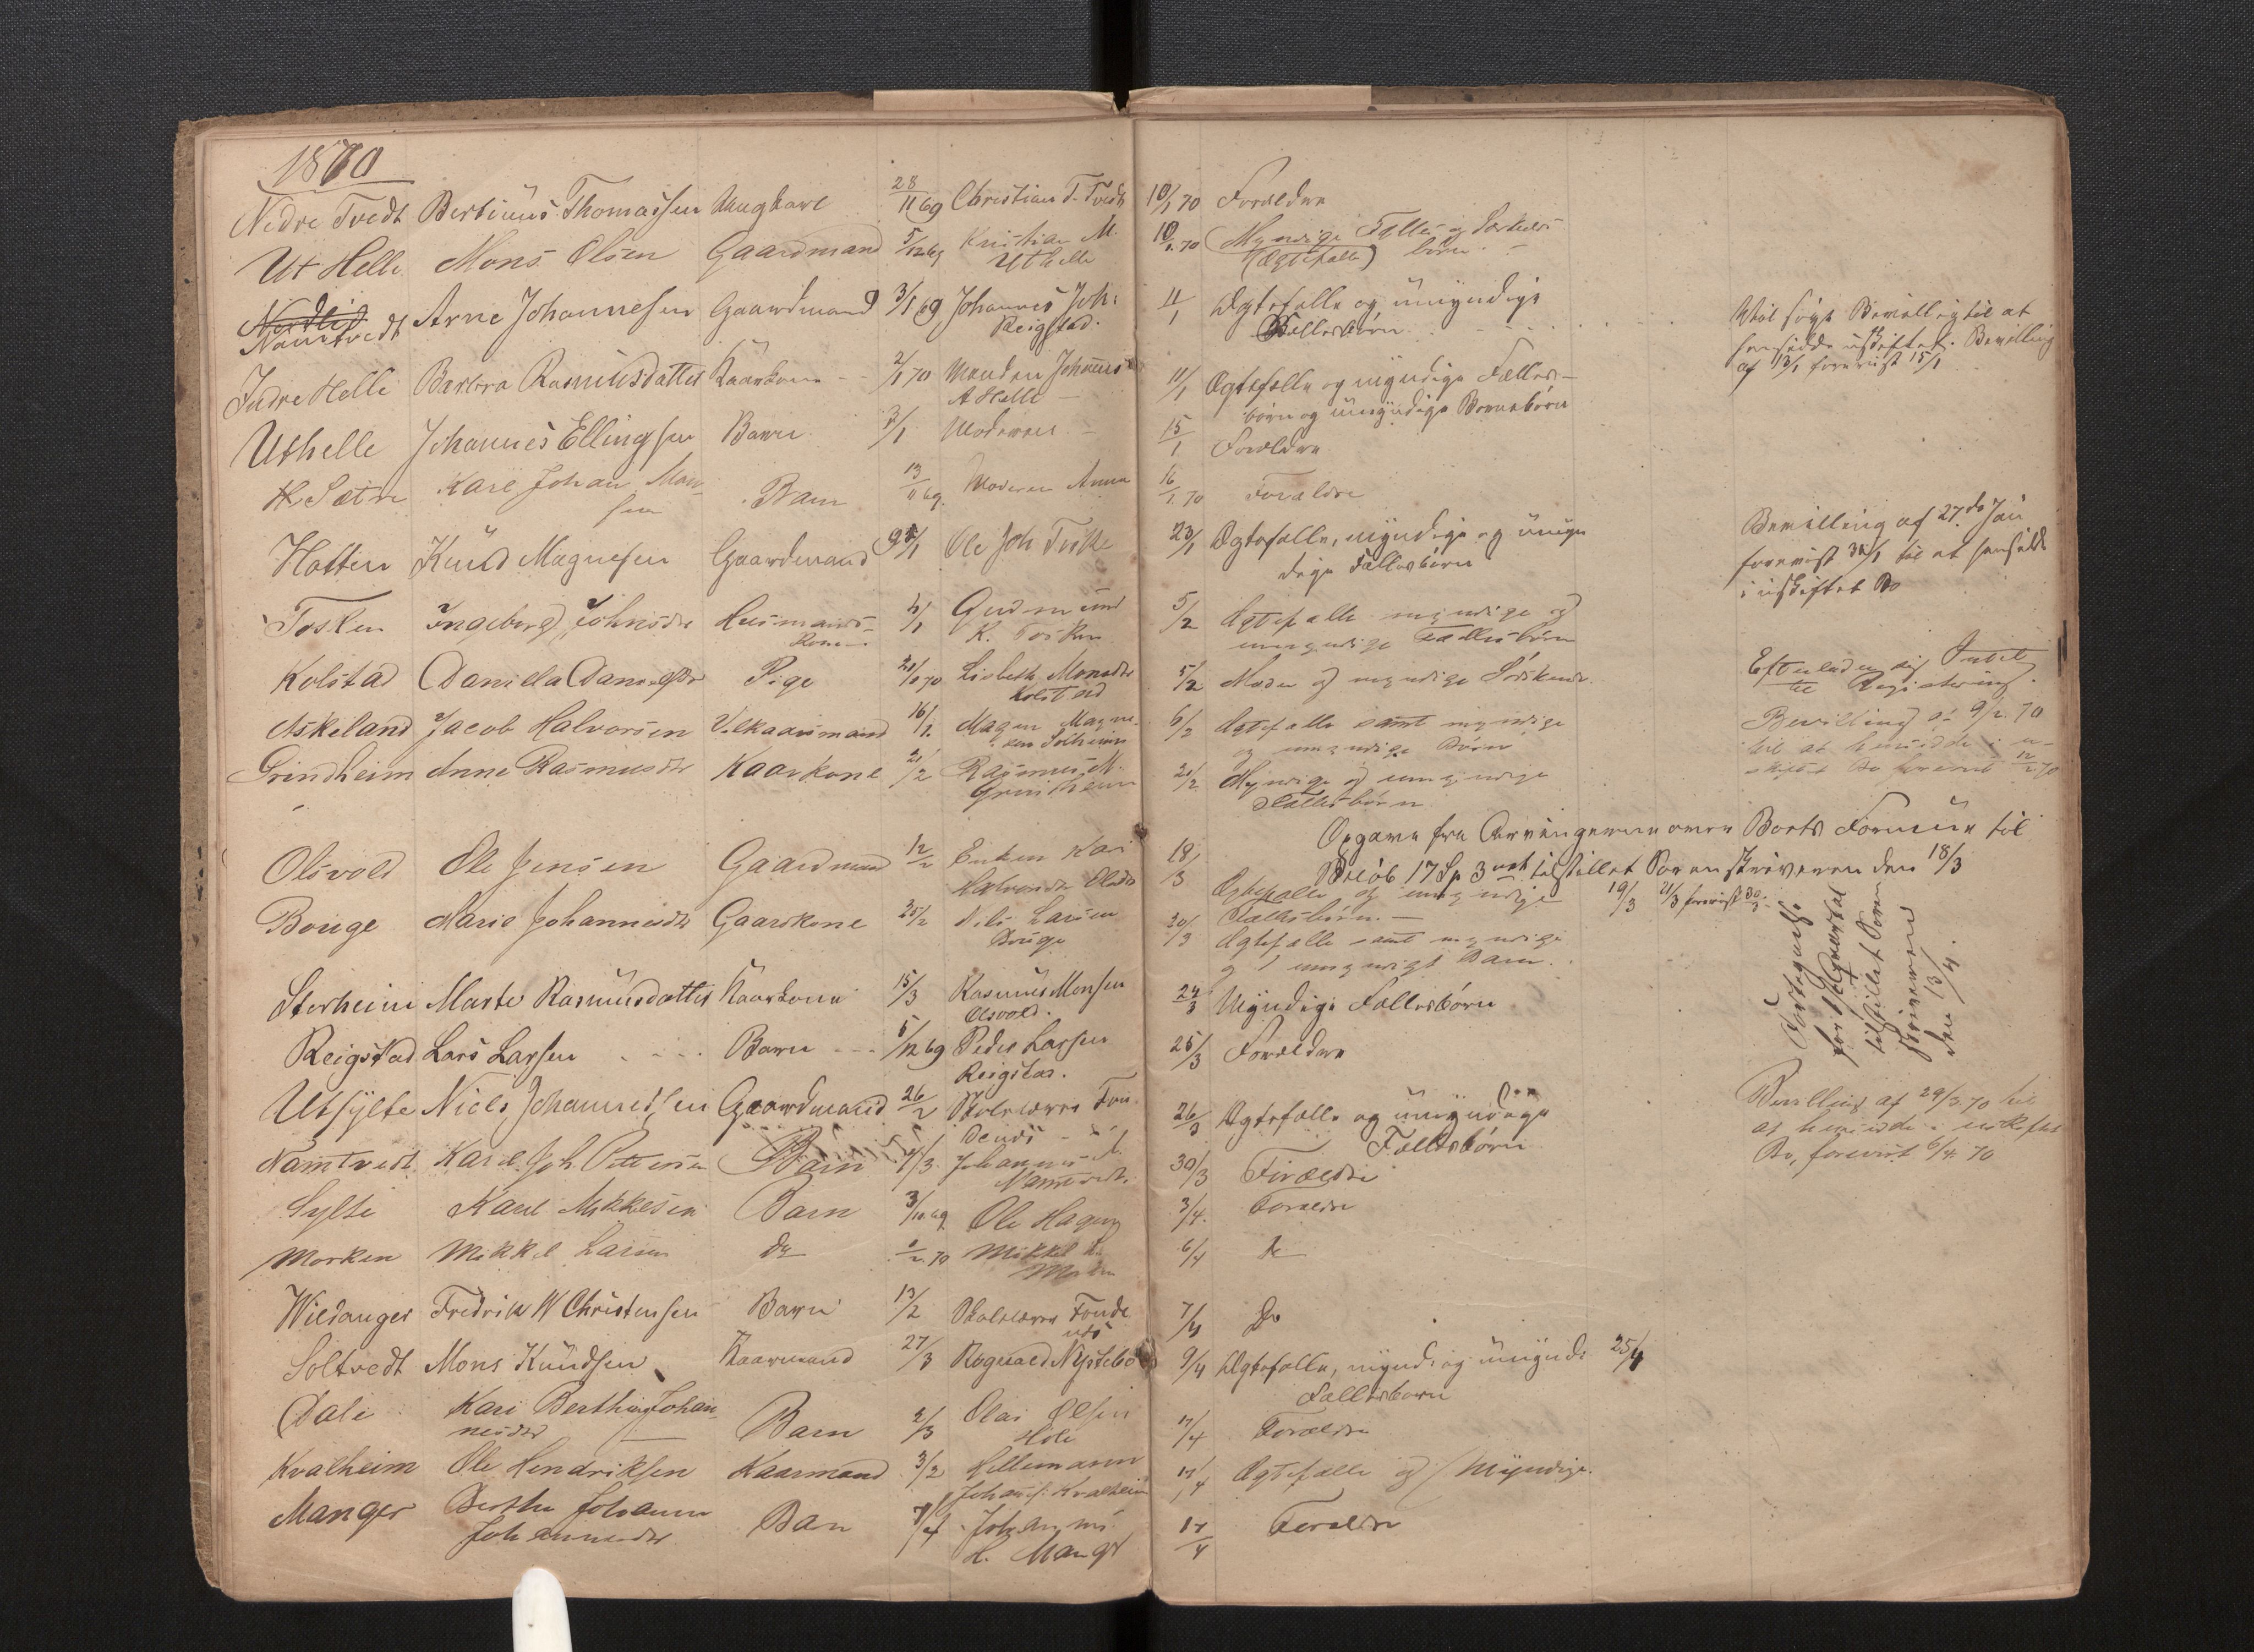 1870
Nedre Tvedt Bertinus Thomassen Ungkarl 28/11 69 Christian T. Tvedt 10/1 70 Forældre
Ut Helle Mons Olsen Gaardmand 5/12 69 Kristian M. 10/1 70 Myndige Fælles og Særkuls
Uthelle (Ægtefælle) børn
Namtvedt Arne Johannesen Gaardmand 3/1 69 Johannes Joh: 11/1 Ægtefælle og umyndige
Reigstad. Fællesbørn Vil søge Bevilling til at
hensidde i uskiftet. Bevilling
af 13/1 forevist 15/1
Indre Helle Barbra Rasmusdatter Kaarkone 2/1 70 Manden Johannes 11/1 Ægtefælle og myndige Fælles-
A Helle børn og umyndige Børnebørn
Uthelle Johannes Ellingsen Barn 3/1 Moderen 15/1 Forældre
Sætre Karl Johan Mon- Barn 13/11 69 Moderen Anna 16/1 70 Forældre
sen
Hatten Knud Magnesen Gaardmand /1 Ole Joh 23/1 Ægtefælle, myndige og umyn
dige Fællesbørn Bevilling af 27de Jan
forevist 30/1 til at hensidde
i uskiftet Bo
Tosken Ingeborg Johnsdr Husmands- 4/1 Gudmund 5/2 Ægtefælle myndige og
kone K. Tosken umyndige Fællesbørn
Kolstad Danilla Danielsdr Pige 21/1 70 Lisbeth Monsdr 5/2 Moder og myndige Södskende Efterlader sig Intet
Kolstad til Registering.
Askeland Jacob Halvorsen Vilkaarsmand 16/1 Magne Magne- 6/2 Ægtefælle samt myndige Bevilling af 9/2 70
sen Solheim og umyndige Børn til at hensidde i u-
skiftet Bo forevist 12/2 70
Grindheim Anne Rasmusdr Kaarkone 21/2 Rasmus M. 21/2 Myndige og umyndige
Grindheim Fællesbørn
Opgave fra Arvingerne over Boets Formue til
Beløb 17 Sp 3 ort tilstillet Sorenskriveren den 18/3
Olsvold Ole Jensen Gaardmand 12/2 Enken Kari 18/3 Ægtefælle og umyndige 19/3 21/3 forevist
Olsvold Fællesbørn.
Bouge Marie Johannesdr Gaardkone 25/2 Nils Larsen 20/3 Ægtefælle samt myndige
Bouge og 1 umyndigt Barn.
Fortegnelse
for 1ste Qvartal
tilstillet Soren
skriveren
den 13/4.
Storheim Marte Rasmusdatter Kaarkone 15/3 Rasmus Monsen 24/3 Myndige Fællesbørn
Olsvold.
Reigstad Lars Larsen Barn 5/12 69 Peder Larsen 25/3 Forældre
Reigstad.
Utsylte Niels Johannessen Gaardmand 26/2 Skolelærer Fon- 26/3 Ægtefælle og umyndige
denæs Fællesbørn Bevilling af 29/3 70 til
at hensidde i uskiftet
Bo, forevist 6/4 70
Namtvedt Karl Joh. Pettersen Barn /3 Johannes A. 30/3 Forældre
Namtvedt
Sylte Karl Mikkelsen Barn 3/10 69 Ole Hagen 3/4 Forældre
Morken Mikkel Larsen do /2 70 Mikkel L. 6/4 do
Morken
Wildanger Fredrik W Christensen Barn 13/2 Skolelærer Fonde 7/4 Do
næs
Soltvedt Mons Knudsen Kaarmand 27/3 Rognald Nystebø 9/4 Ægtefælle, mynd. og umynd. 25/4
Fællesbørn
Dale Kari Berthea Johan- Barn 2/3 Olai Olsen 17/4 Forældre
nesdr
Kvalheim Ole Hendriksen Kaarmand 3/2 Hillemann 17/4 Ægtefælle og Myndige.
Johans. Kvalheim
Manger Berthe Johanne Ban 7/4 Johannes 17/4 Forældre
Johannesdr H. Mangr